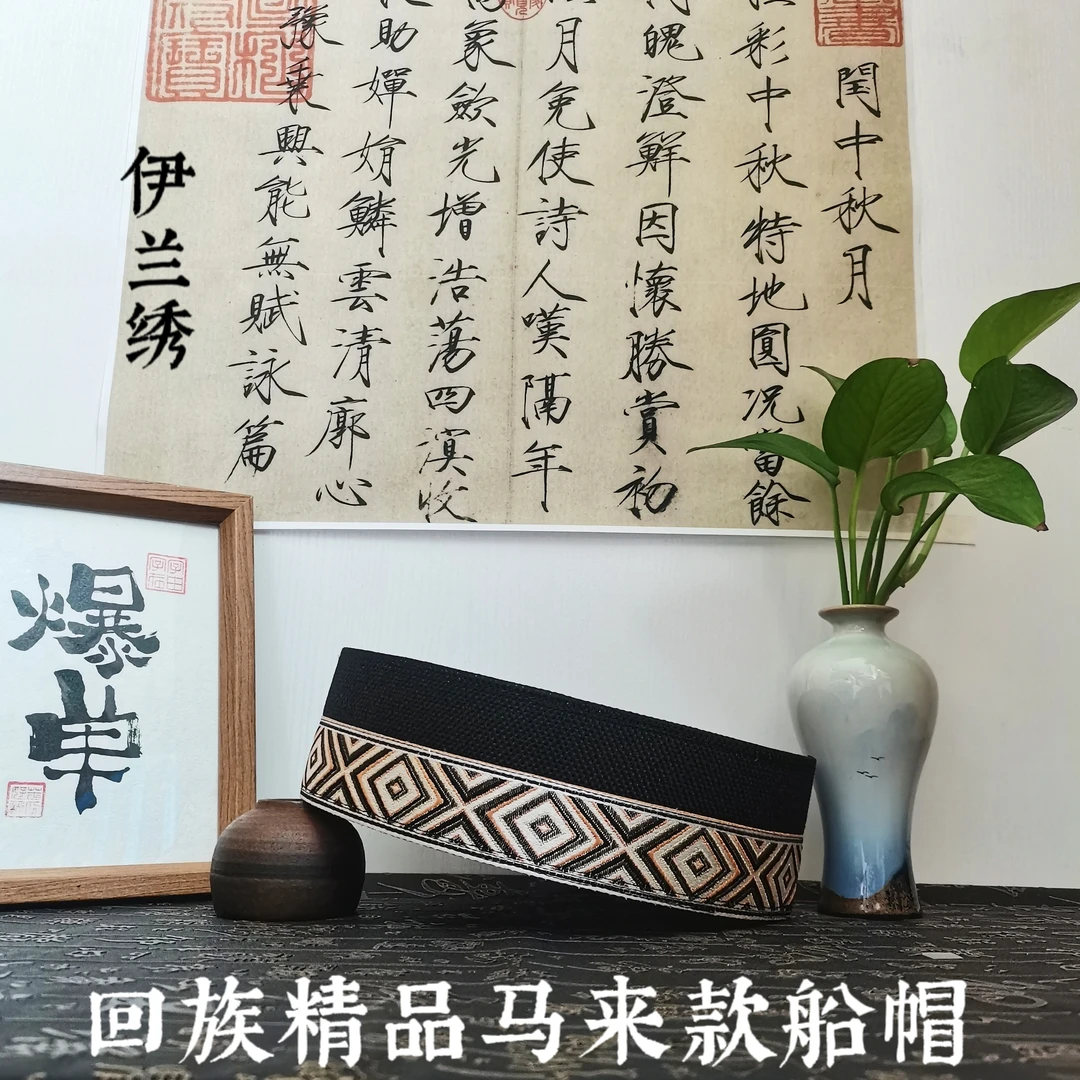 閏中秋月
彩中秋特地圓况當餘
魄澄鮮因懷勝賞初
月免使詩人嘆隔年
象歛光增浩蕩四溟收
助嬋娟鱗雲清廓心
豫乘興能無賦詠篇
伊兰绣
爆单
回族精品马来款船帽